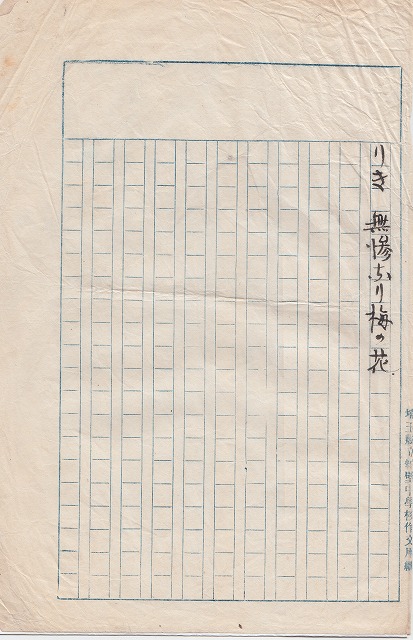 りき 無惨なり梅の花
埼玉縣立中學校作文用紙